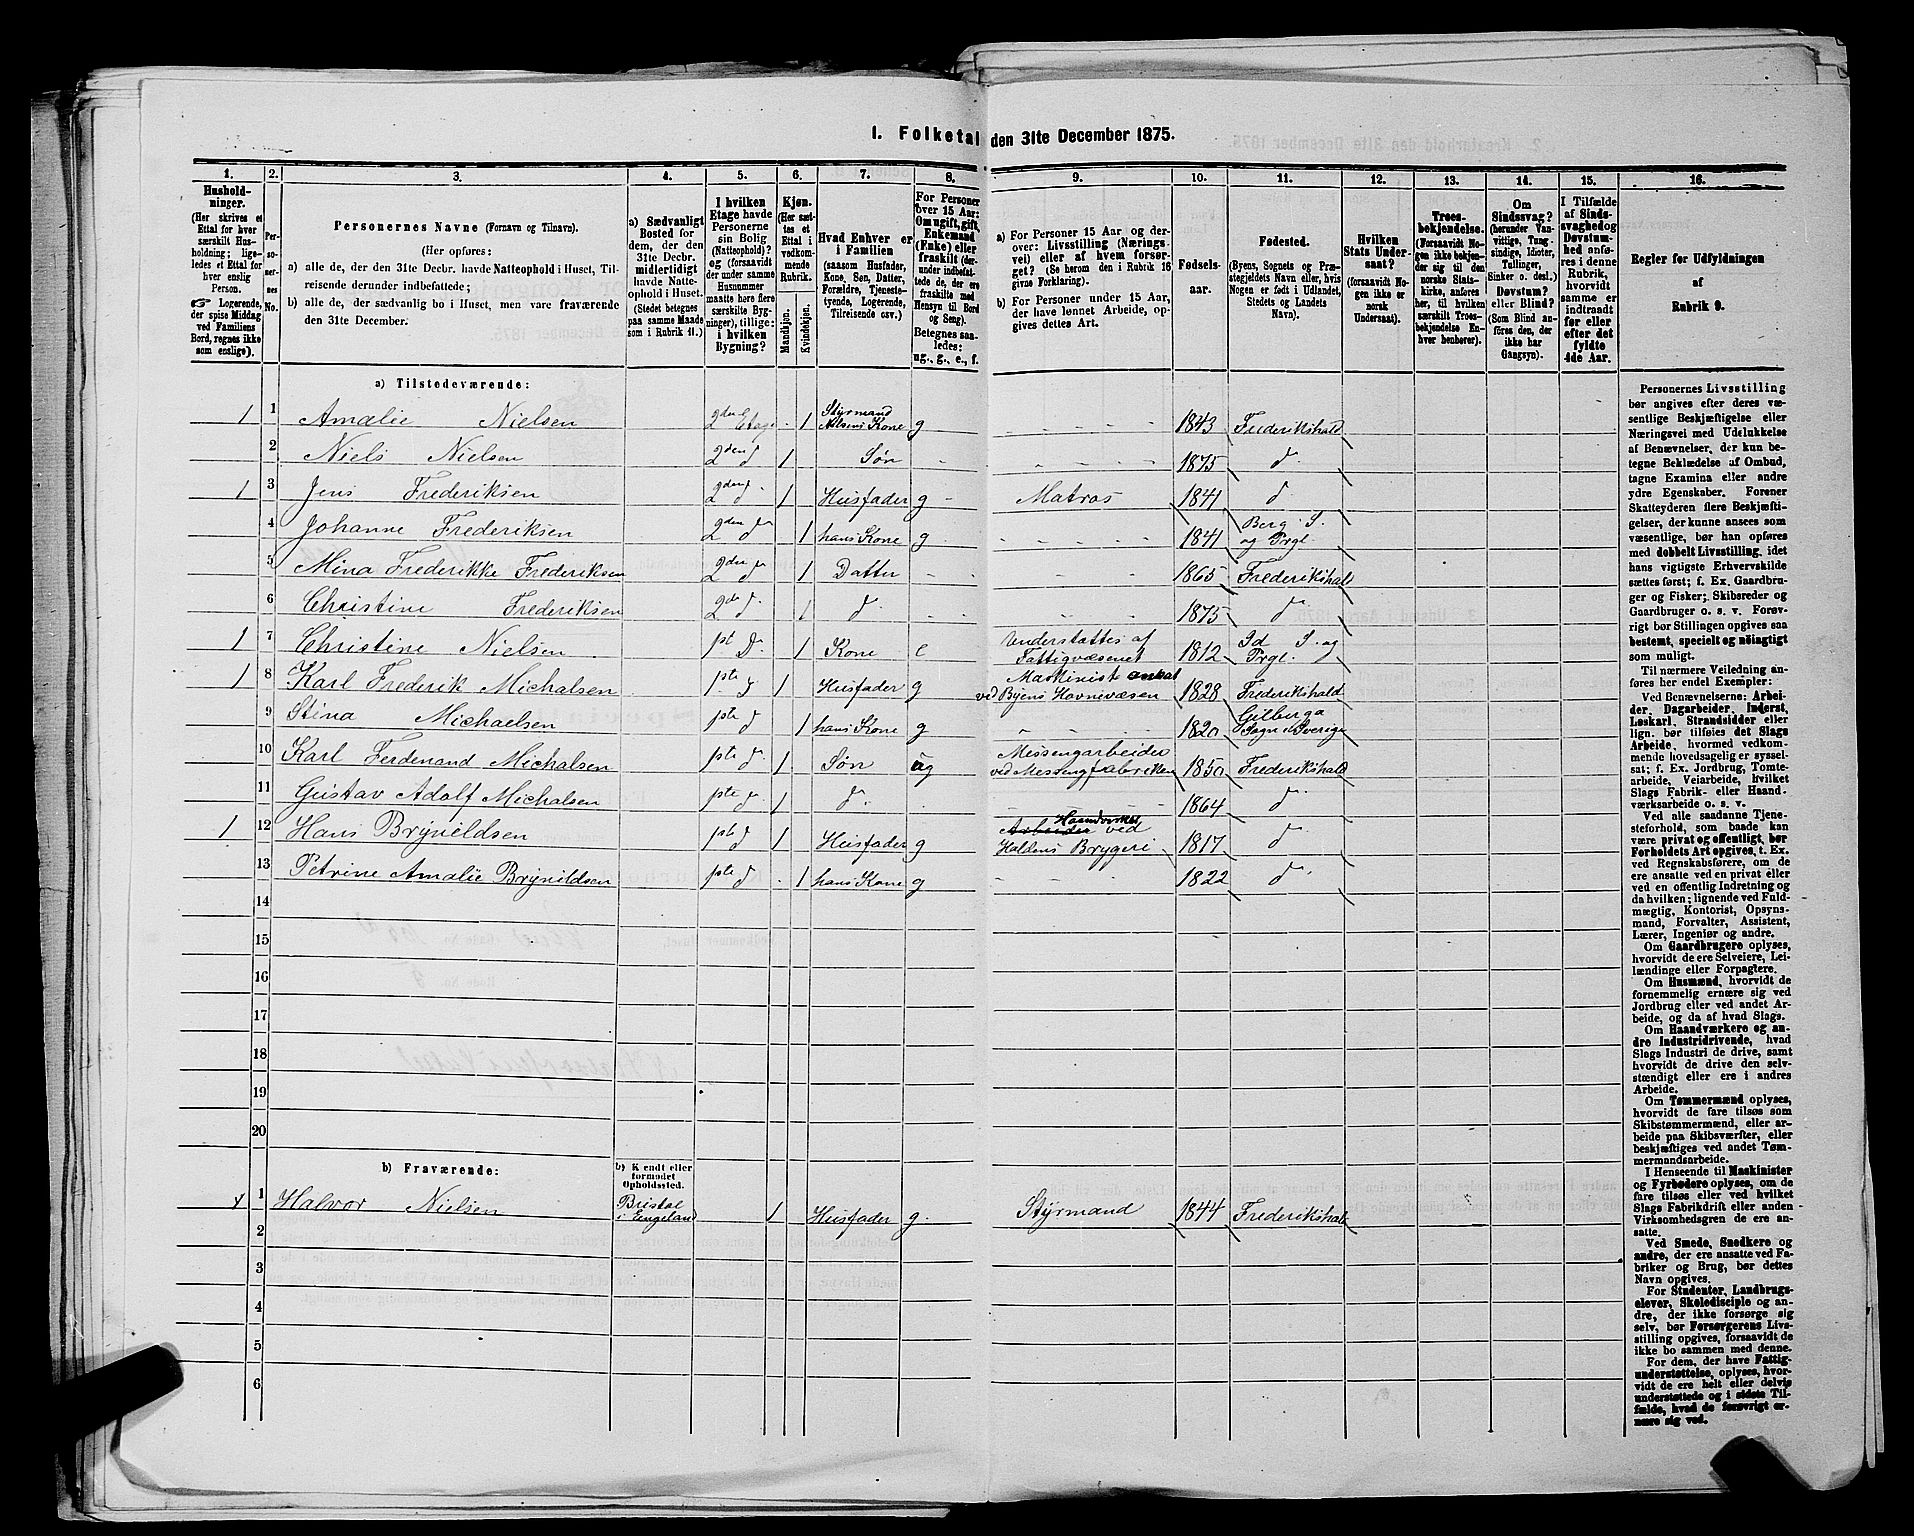 I. Folketal den 31te December 1875.
1. 2. 3. 4. 5. 6. 7. 8. 9. 10. 11. 12. 13. 14. 15. 16.
Hushold-
ninger.
(Her skrives et
Ettal for hver
særskilt Hus-
holdning; lige-
ledes et Ettal for
hver enslig
Person.
☞ Logerende,
der spise Middag
ved Familiens
Bord, regnes ikke
som enslige).
Per-
soner-
nes
No.
Personernes Navne (Fornavn og Tilnavn).
(Her opføres:
a) alle de, der den 31te Decbr. havde Natteophold i Huset, Til-
reisende derunder indbefattede;
b) alle de, der sædvanlig bo i Huset, men vare fraværende
den 31te December.
a) Sædvanligt
Bosted for
dem, der den
31te Decbr.
midlertidigt
havde Natte-
ophold i Huset.
(Stedet betegnes
paa samme Maade
som i Rubrik 11.)
I hvilken
Etage havde
Personerne
sin Bolig
(Natteophold)?
og (forsaavidt
der under samme
Husnummer
maatte høre flere
særskilte Byg-
ninger), tillige:
i hvilken
Bygning?
Kjøn.
(Her sæt-
tes et
Ettal i
vedkom-
mende
Rubrik.
Mandkjøn.
Kvindekjøn.
Hvad Enhver er
i Familien
(saasom Husfader,
Kone, Søn, Datter,
Forældre, Tjeneste-
tyende, Logerende,
Tilreisende osv.)
For Personer
over 15 Aar:
Om ugift, gift,
Enkemand
(Enke) eller
fraskilt (der-
under indbefat-
tede de, der
ere fraskilte med
Hensyn til Bord
og Seng).
Betegnes saa-
ledes:
ug., g., e., f.
a) For Personer 15 Aar og der-
over: Livsstilling (Nærings-
vei) eller af hvem forsør-
get? (Se herom den i Rubrik 16
givne Forklaring).
b) For Personer under 15 Aar,
der have lønnet Arbeide, op-
gives dettes Art.
Fødsels-
aar.
Fødested.
(Byens, Sognets og Præ-
stegjeldets Navn eller, hvis
Nogen er født i Udlandet,
Stedets og Landets
Navn).
Hvilken
Stats Under-
saat?
(forsaavidt No-
gen ikke er
norsk
Undersaat).
Troes-
bekjendelse.
(Forsaavidt No-
gen ikke beken-
der sig til den
norske Stats-
kirke, anføres
her, til hvilken
særskilt Troes-
bekjendelse En-
hver henhører).
Om
Sindssvag?
(herunder Van-
vittige, Tung-
sindige, Idioter,
Tullinger,
Sinker o. desl.)
Døvstum?
eller Blind?
(Som Blind an-
føres den, der
ikke har
Gangsyn).
I Tilfælde
af Sinds-
svaghed og
Døvstum-
hed anfø-
res i denne
Rubrik,
hvorvidt
samme er
indtraadt
før eller
efter det
fyldte
4de Aar.
Regler for Udfyldningen
af
Rubrik 9.
a) Tilstedeværende:
1 1 Amalie Nielsen 2den Etage - 1 Styrmand Nilsens Kone g - - - - 1843 Frederikshald
2 Niels Nielsen 2den d 1 Søn - - - - - 1875 d
1 3 Jens Frederiksen 2den d 1 Husfader g - Matros - 1841 d
4 Johanne Frederiksen 2den d 1 hans Kone g - - - - 1841 Berg S. og Prgl.
5 Mina Frederikke Frederiksen 2den d 1 Datter - - - - 1865 Frederikshald
6 Christine Frederiksen 2den d 1 d - - - - 1875 d
1 7 Christine Nielsen 1ste D. 1 Kone e Understøttes af Fattigvæsenet 1812 Id S. og Prgl.
1 8 Karl Frederik Michalsen 1ste d 1 Husfader g Maskinist ansat ved Byens Havnevæsen 1828 Frederikshald
9 Stina Michaelsen 1ste d 1 hans Kone g - - - 1820 Gilberga Sogn i Sverige
10 Karl Ferdenand Michalsen 1ste d 1 Søn ug Messengarbeider ved Messengfabriken 1850 Frederikshald
11 Gustav Adolf Michalsen 1ste d 1 d - - - 1864 d
1 12 Hans Brynildsen 1ste d 1 Husfader g Arbeider ved Haldens Brygeri 1817 d
13 Petrine Amalie Brynildsen 1ste d - 1 hans Kone g - - - 1822 d
14
15
16
17
18
19
20
b) Fraværende:
b) Kjendt eller
formodet
Opholdssted.
1 Halvor Nielsen Bristol i Engeland 1 Husfader g. Styrmand 1844 Frederikshald
2
3
4
5
6
Personernes Livsstilling
bør angives efter deres væ-
sentlige Beskjæftigelse eller
Næringsvei med Udelukkelse
af Benævnelser, der kun be-
tegne Beklædelse af Ombud,
tagne Examina eller andre
ydre Egenskaber. Forener
Skatteyderen flere Beskjæfti-
gelser, der kunne ansees som
væsentlige, bør han opføres
med dobbelt Livsstilling, idet
hans vigtigste Erhvervskilde
sættes først; f. Ex. Gaardbru-
ger og Fisker; Skibsreder og
Gaardbruger o. s. v. Forøv-
rigt bør Stillingen opgives saa
bestemt, specielt og nøiagtigt
som muligt.
Til nærmere Veiledning an-
føres her endel Exempler:
Ved Benævnelserne: Arbei-
der, Dagarbeider, Inderst,
Løskarl, Strandsidder eller
lign. bør tilføies det Slags
Arbeide, hvormed vedkom-
mende hovedsagelig er syssel-
sat; f. Ex. Jordbrug, Tomte-
arbeide, Veiarbeide, hvilket
Slags Fabrik- eller Haand-
værksarbeide o. s. v.
Ved alle saadanne Tjene-
steforhold, som baade kan
være privat og offentligt, bør
Forholdets Art opgives, t. Ex.
ved Regnskabsførere, om de
ere ansatte ved en privat eller
ved en offentlig Indretning og
da hvilken; lignende ved Fuld-
mægtig, Kontorist, Opsyns-
mand, Forvalter, Assistent,
Lærer, Ingeniør og andre.
Om Gaardbrugere oplyses,
hvorvidt de ere Selveiere, Lei-
lændinge eller Forpagtere.
Om Husmænd, hvorvidt de
fornemmelig ernære sig ved
Jordbrug eller ved andet Ar-
beide, og da af hvad Slags.
Om Haandværkere og an-
dre Industridrivende, hvad
Slags Industri de drive, samt
hvorvidt de drive den selv-
stændigt eller ere i andres
Arbeide.
Om Tømmermænd oplyses,
hvorvidt de fare tilsøs som
Skibstømmermænd, eller ar-
beide paa Skibsværfter, eller
beskjæftiges ved andet Tøm-
mermandsarbeide.
I Henseende til Maskinister
og Fyrbødere oplyses, om de
fare tilsøs eller ved hvilket
Slags Fabrikdrift eller anden
Virksomhedsgren de ere an-
satte.
Ved Smede, Snedkere og
andre, der ere ansatte ved Fa-
briker og Brug, bør dettes
Navn opgives.
For Studenter, Landbrugs-
elever, Skoledisciple og an-
dre, der ikke forsørge sig
selv, bør Forsørgerens Livs-
stilling opgives, forsaavidt de
ikke bo sammen med denne.
For dem, der have Fattig-
understøttelse, oplyses, hvor-
vidt de ere helt eller delvis
understøttede og i sidste Til-
fælde, hvad de forøvrigt er-
nære sig ved.